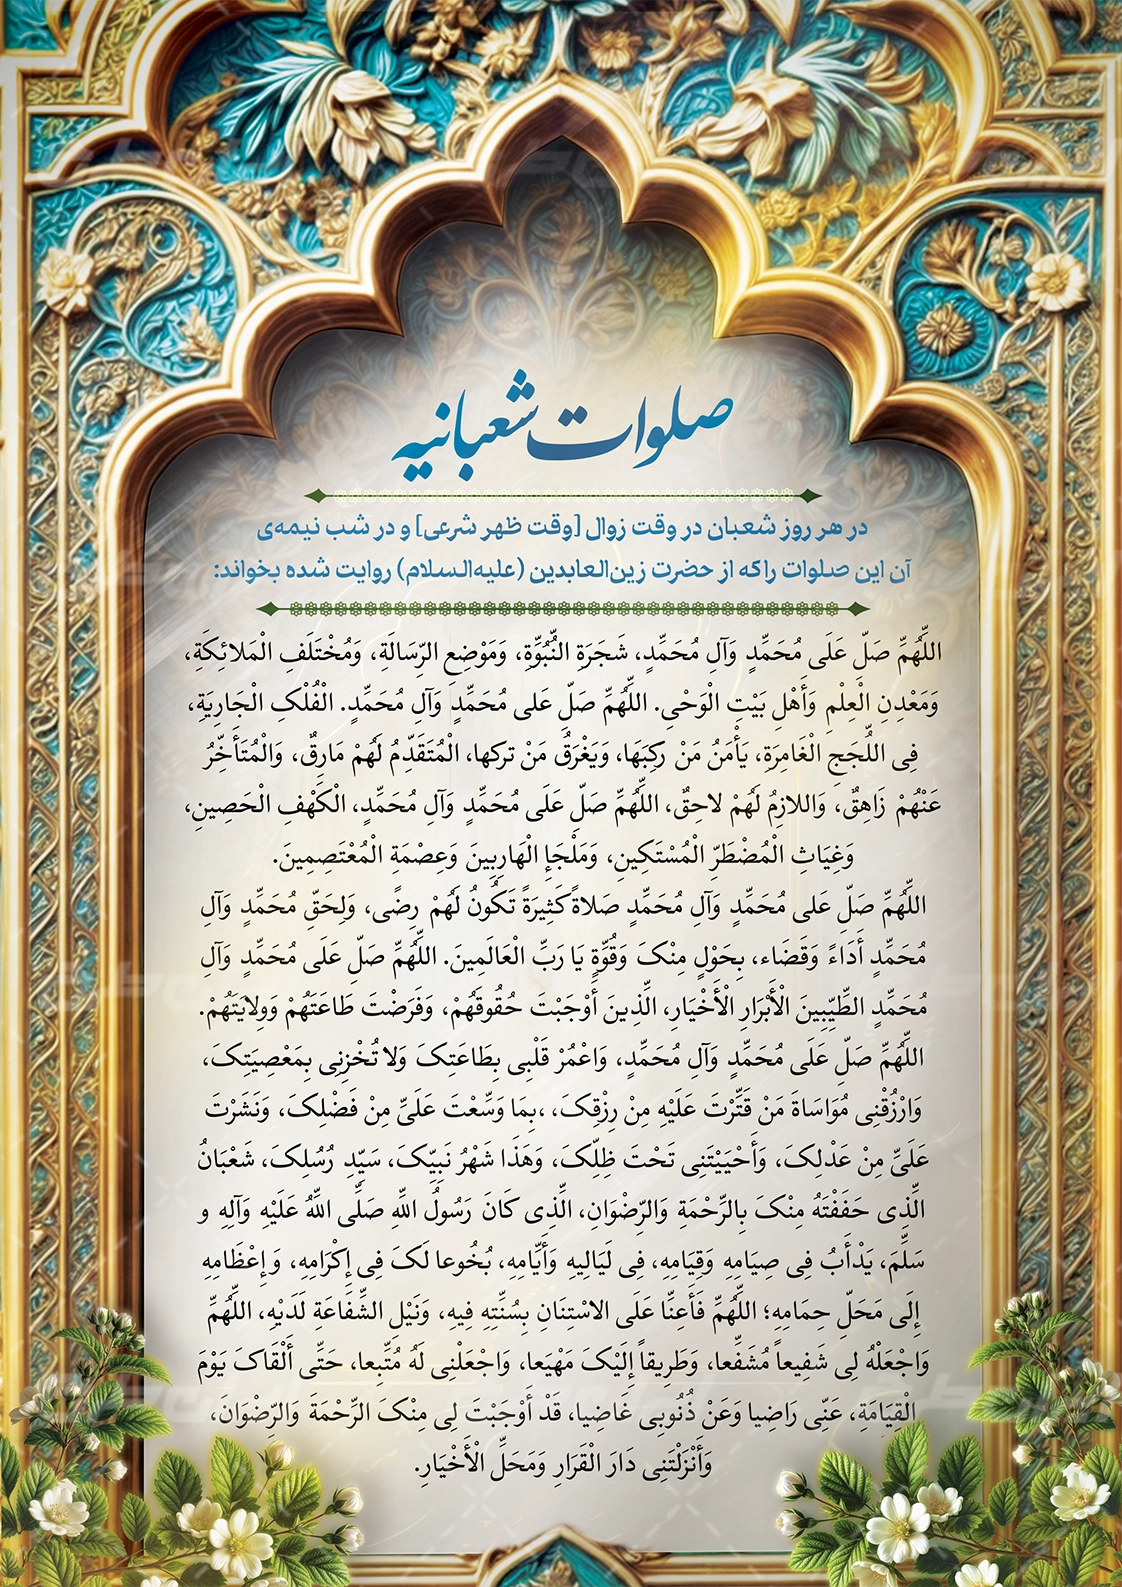 صلوات شعبانیه
در هر روز شعبان در وقت زوال [وقت ظهر شرعی] و در شب نیمه‌ی
آن این صلوات را که از حضرت زین‌العابدین (علیه‌السلام) روایت شده بخواند:
اللَّهُمَّ صَلِّ عَلَى مُحَمَّدٍ وَآلِ مُحَمَّدٍ، شَجَرَةِ النُّبُوَّةِ، وَمَوْضِعِ الرِّسَالَةِ، وَمُخْتَلَفِ الْمَلائِكَةِ،
وَمَعْدِنِ الْعِلْمِ وَأَهْلِ بَيْتِ الْوَحْىِ. اللَّهُمَّ صَلِّ عَلى مُحَمَّدٍ وَآلِ مُحَمَّدٍ. الْفُلْکِ الْجَارِيَةِ،
فِى اللُّجَجِ الْغَامِرَةِ، يَأْمَنُ مَنْ رَكِبَهَا، وَيَغْرَقُ مَنْ تركها، الْمُتَقَدِّمُ لَهُمْ مَارِقٌ، وَالْمُتَأَخِّرُ
عَنْهُمْ زَاهِقٌ، وَاللازِمُ لَهُمْ لاحِقٌ، اللَّهُمَّ صَلِّ عَلَى مُحَمَّدٍ وَآلِ مُحَمَّدٍ، الْكَهْفِ الْحَصِينِ،
وَغِيَاثِ الْمُضْطَرِّ الْمُسْتَكِينِ، وَمَلْجَإِ الْهَارِبِينَ وَعِصْمَةِ الْمُعْتَصِمِينَ.
اللَّهُمَّ صَلِّ عَلى مُحَمَّدٍ وَآلِ مُحَمَّدٍ صَلاةً كَثِيرَةً تَكُونُ لَهُمْ رِضًى، وَلِحَقِّ مُحَمَّدٍ وَآلِ
مُحَمَّدٍ أَدَاءً وَقَضَاء، بِحَوْلٍ مِنْکَ وَقُوَّةٍ يَا رَبَّ الْعَالَمِينَ. اللَّهُمَّ صَلِّ عَلَى مُحَمَّدٍ وَآلِ
مُحَمَّدٍ الطَّيِّبِينَ الْأَبْرَارِ الْأَخْيَارِ، الَّذِينَ أَوْجَبْتَ حُقُوقَهُمْ، وَفَرَضْتَ طَاعَتَهُمْ وَوِلايَتَهُمْ.
اللَّهُمَّ صَلِّ عَلَى مُحَمَّدٍ وَآلِ مُحَمَّدٍ، وَاعْمُرْ قَلْبِى بِطَاعَتِکَ وَلا تُخْزِنِى بِمَعْصِيَتِکَ،
وَارْزُقْنِى مُوَاسَاةَ مَنْ قَتَّرْتَ عَلَيْهِ مِنْ رِزْقِکَ، ،بِمَا وَسَّعْتَ عَلَىَّ مِنْ فَضْلِکَ، وَنَشَرْتَ
عَلَىَّ مِنْ عَدْلِکَ، وَأَحْيَيْتَنِى تَحْتَ ظِلِّکَ، وَهَذَا شَهْرُ نَبِيِّکَ، سَيِّدِ رُسُلِکَ، شَعْبَانُ
الَّذِى حَفَفْتَهُ مِنْکَ بِالرَّحْمَةِ وَالرِّضْوَانِ، الَّذِى كَانَ رَسُولُ اللَّهِ صَلَّى اللَّهُ عَلَيْهِ وَآلِهِ و
سَلَّمَ، يَدْأَبُ فِى صِيَامِهِ وَقِيَامِهِ، فِى لَيَالِيهِ وَأَيَّامِهِ، بُخُوعا لَکَ فِى إِكْرَامِهِ، وَإِعْظَامِهِ
إِلَى مَحَلِّ حِمَامِهِ؛ اللَّهُمَّ فَأَعِنَّا عَلَى الاسْتِنَانِ بِسُنَّتِهِ فِيهِ، وَنَيْلِ الشَّفَاعَةِ لَدَيْهِ، اللَّهُمَّ
وَاجْعَلْهُ لِى شَفِيعاً مُشَفَّعا، وَطَرِيقاً إِلَيْکَ مَهْيَعا، وَاجْعَلْنِى لَهُ مُتَّبِعا، حَتَّى أَلْقَاکَ يَوْمَ
الْقِيَامَةِ، عَنِّى رَاضِيا وَعَنْ ذُنُوبِى غَاضِيا، قَدْ أَوْجَبْتَ لِى مِنْکَ الرَّحْمَةَ وَالرِّضْوَانَ،
وَأَنْزَلْتَنِى دَارَ الْقَرَارِ وَمَحَلَّ الْأَخْيَارِ.